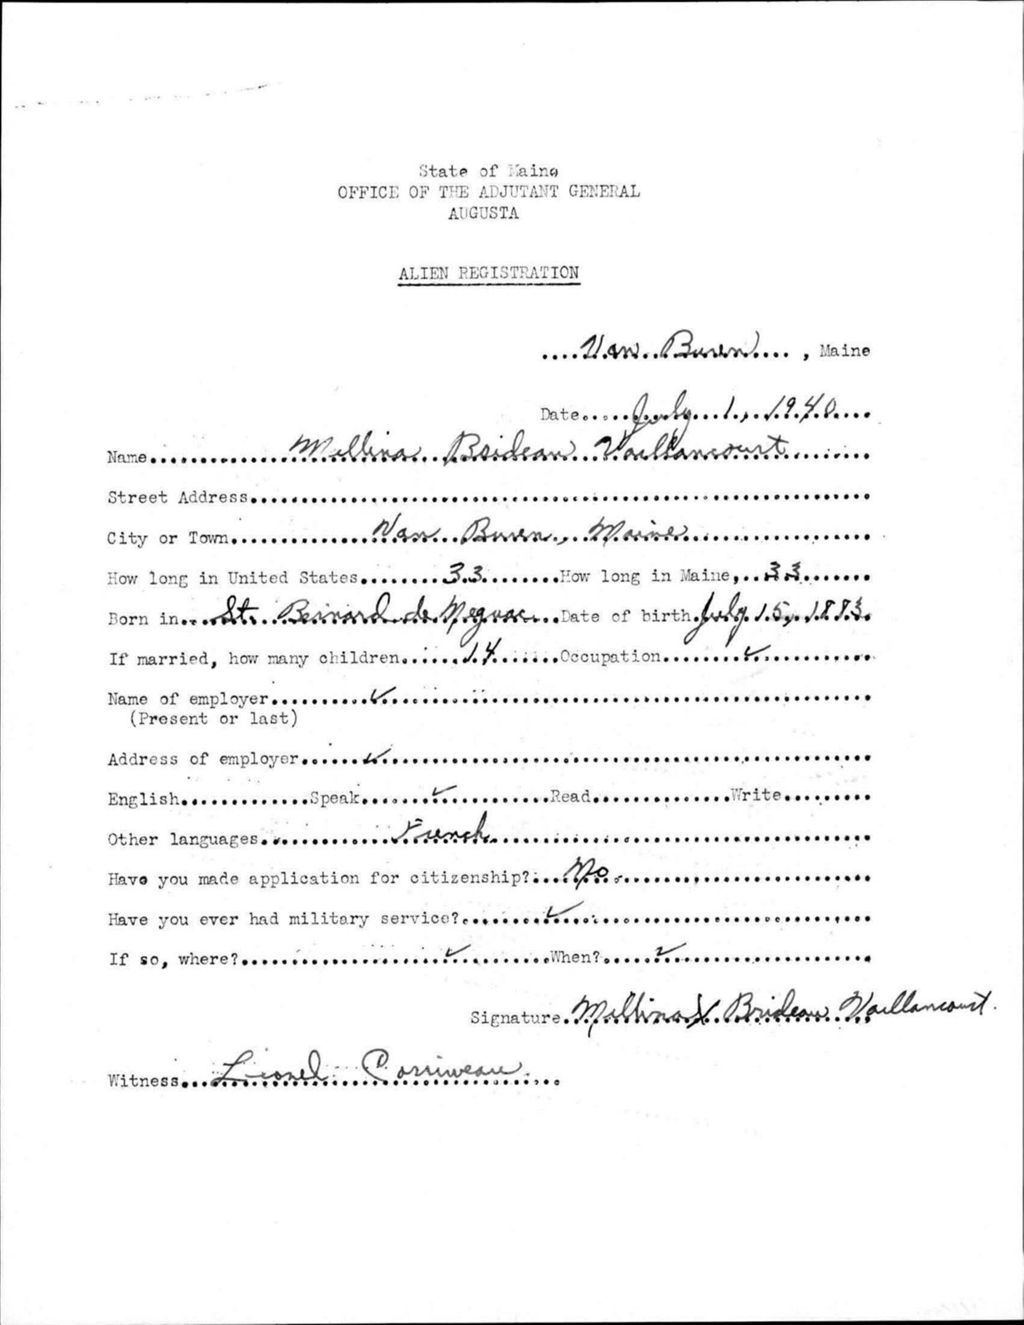 State of Maine
OFFICE OF THE ADJUTANT GENERAL
AUGUSTA
ALIEN REGISTRATION
....Van Buren...., Maine
Date.....July 1, 1940....
Name..............Mellina Brideau Vaillancourt.........
Street Address..............................
City or Town..............Van Buren, Maine..............
How long in United States........33........How long in Maine,..33.......
Born in...St. Bernard de Megnac...Date of birth.July 15, 1883.
If married, how many children......14......Occupation........✓...........
Name of employer..........✓..............................
(Present or last)
Address of employer......✓..............................
English.............Speak.......✓...........Read.............Write.........
Other languages.............French..............................
Have you made application for citizenship?....No..............................
Have you ever had military service?.........✓..............................
If so, where?....................✓.........When?.....✓...................
Signature.Mellina X Brideau Vaillancourt.
Witness...Lionel Corriveau....